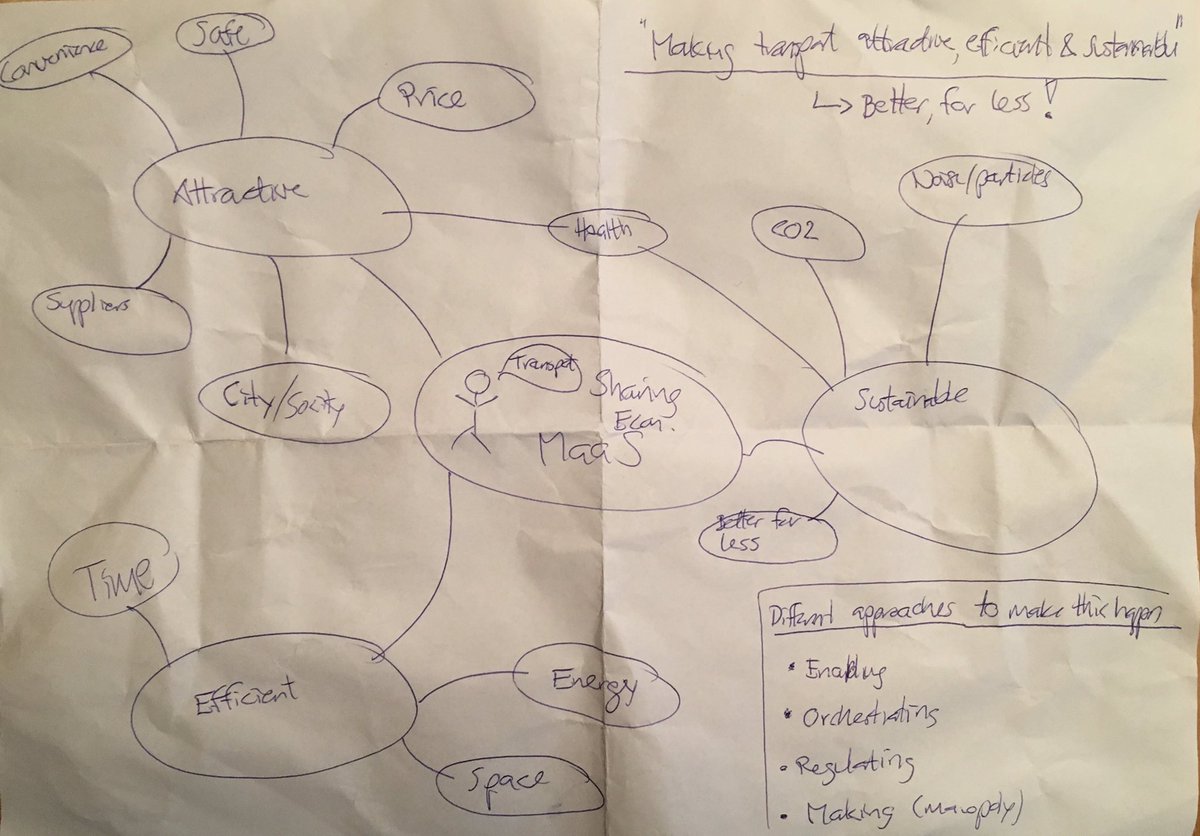 "Making transport attractive, efficient & sustainable"
↳ Better, for less!
Convenience
Safe
Price
Attractive
Suppliers
City/Socity
Health
CO2
Noise/particles
Sustainable
Better for
less
Transport
Sharing
Econ.
MaaS
Time
Efficient
Energy
Space
Different approaches to make this happen
• Enabling
• Orchestrating
• Regulating
• Making (monopoly)